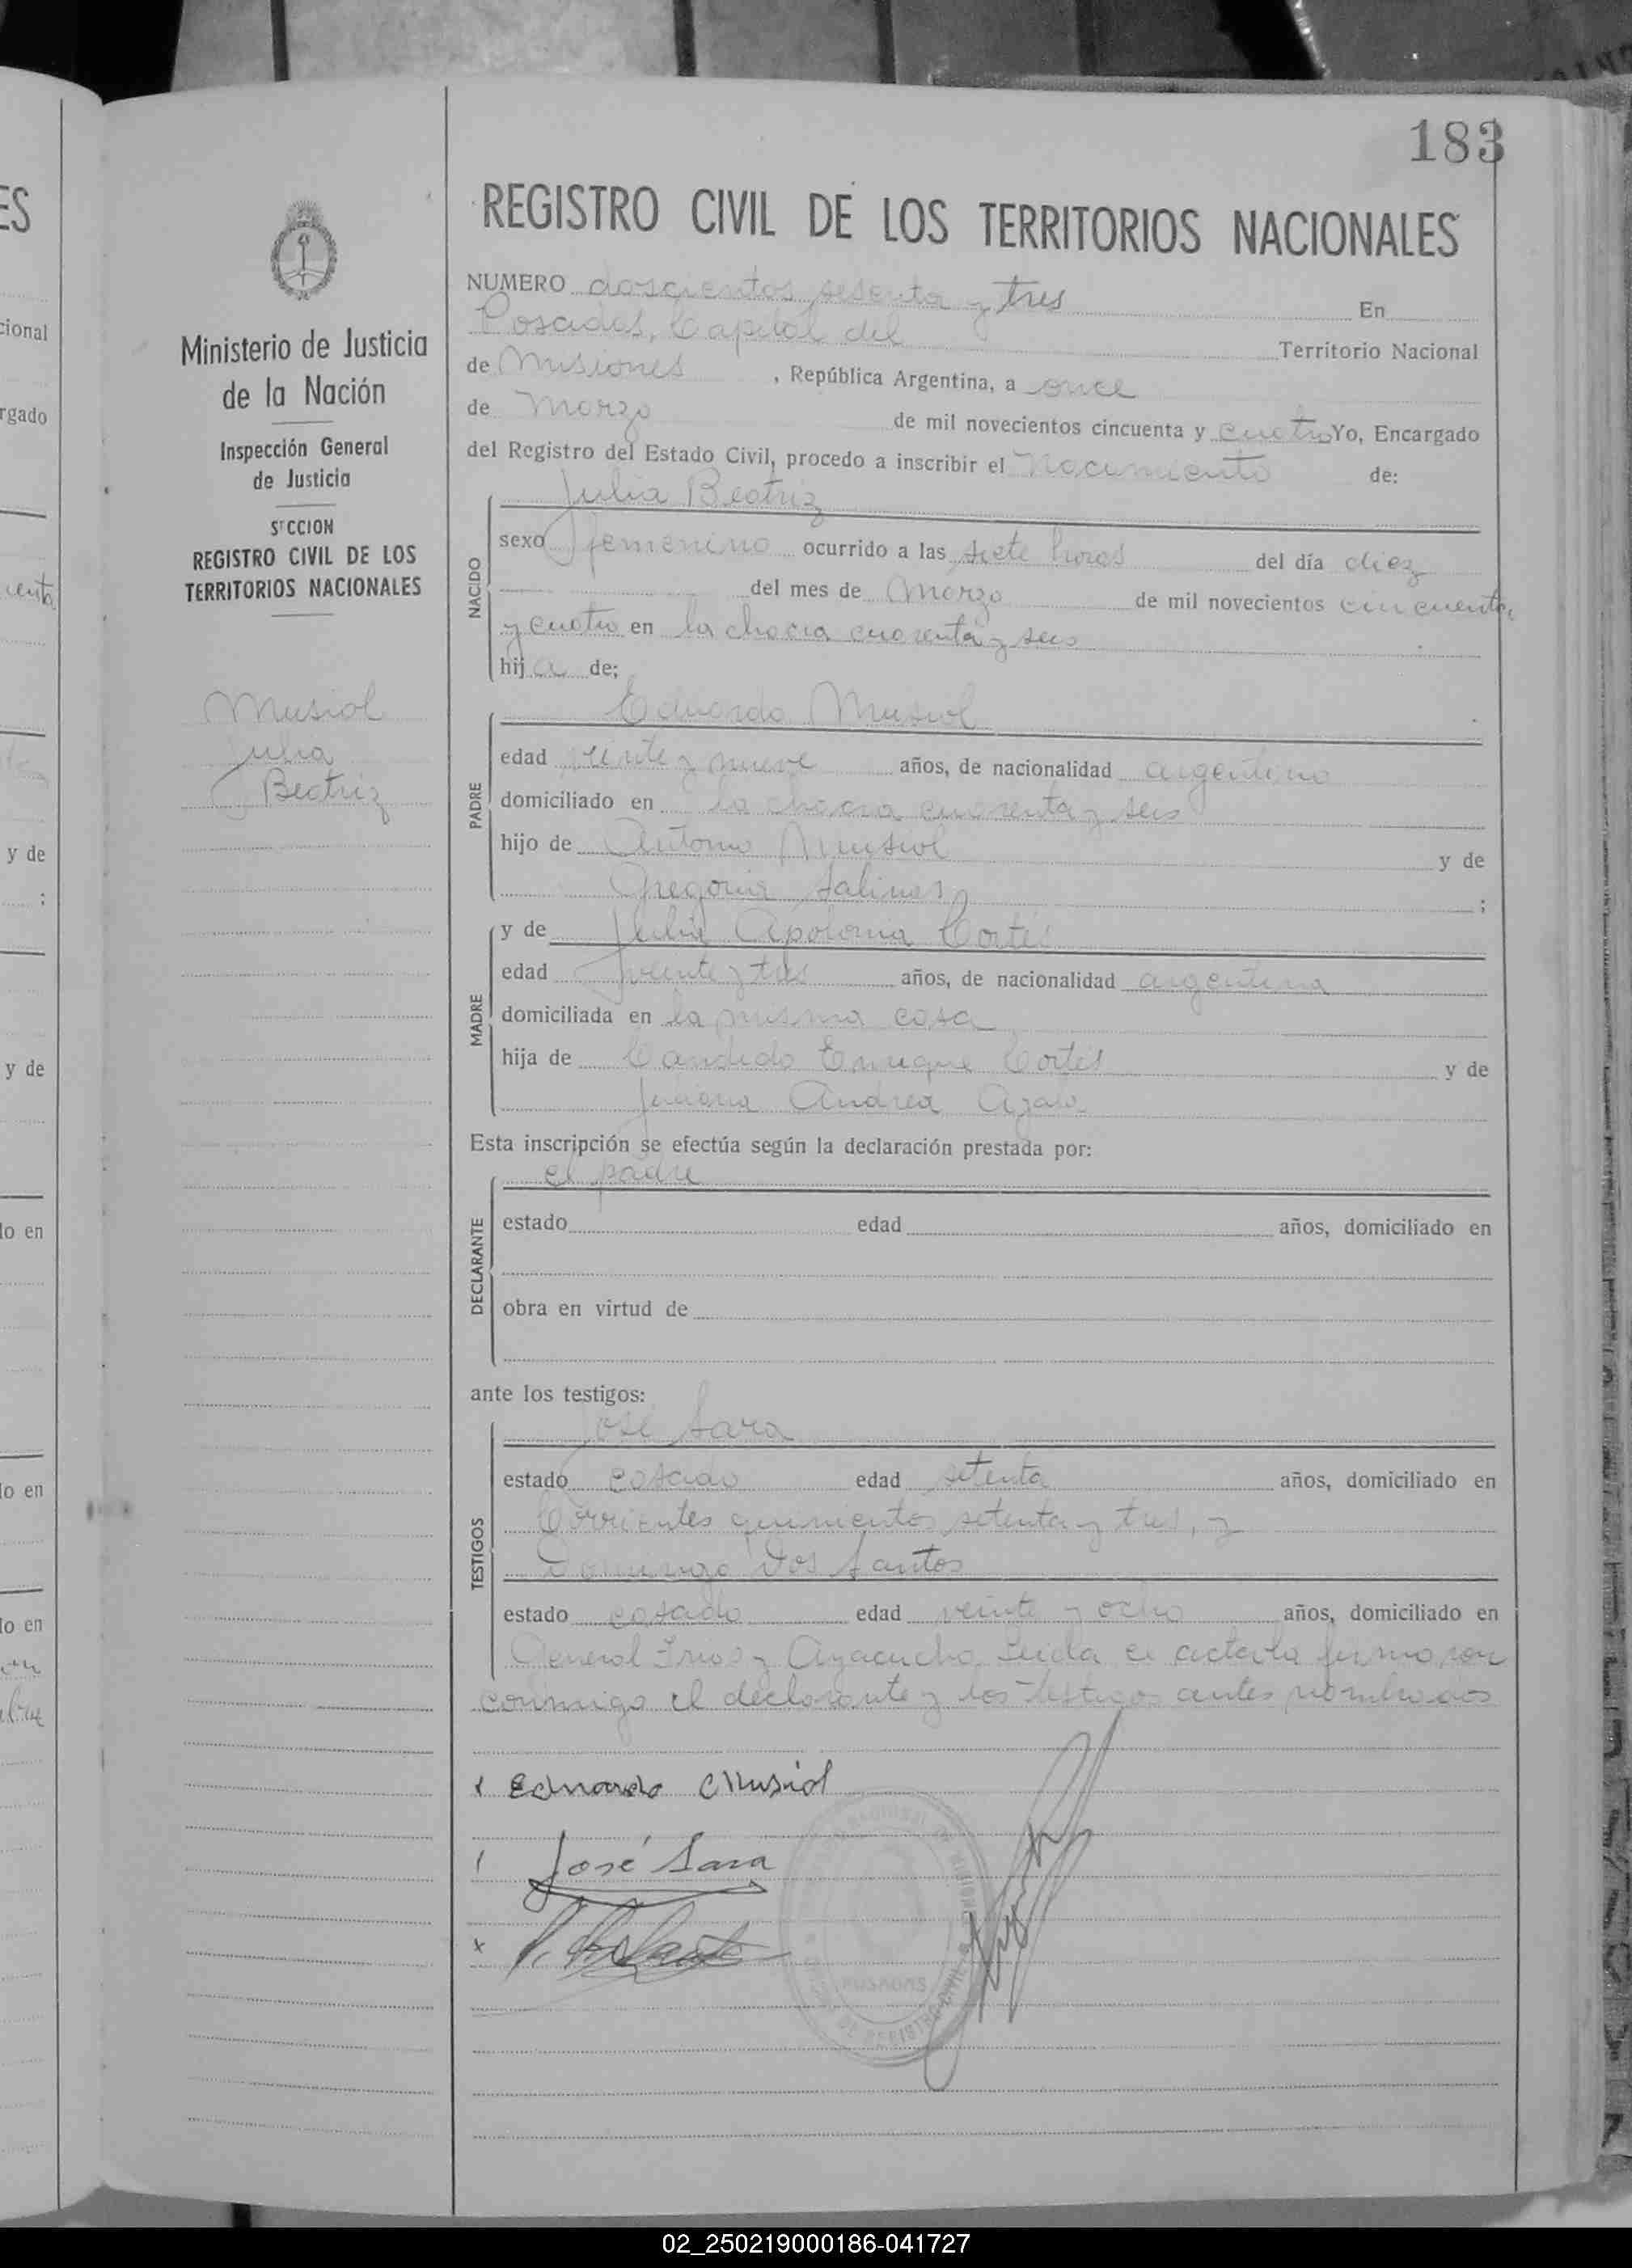 183
REGISTRO CIVIL DE LOS TERRITORIOS NACIONALES
Ministerio de Justicia
de la Nación
Inspección General
de Justicia
SECCION
REGISTRO CIVIL DE LOS
TERRITORIOS NACIONALES
Musiol
Julia
Beatriz
NUMERO doscientos sesenta y tres En
Posadas, Capital del Territorio Nacional
de Misiones, República Argentina, a once
de Marzo de mil novecientos cincuenta y cuatro Yo, Encargado
del Registro del Estado Civil, procedo a inscribir el Nacimiento de:
Julia Beatriz
NACIDO
sexo femenino ocurrido a las siete horas del día diez
del mes de Marzo de mil novecientos cincuenta
y cuatro en la chacra cuarenta y seis
hija de;
Eduardo Musiol
PADRE
edad veinte y nueve años, de nacionalidad argentino
domiciliado en la chacra cuarenta y seis
hijo de Antonio Musiol y de
Gregoria Salinas;
MADRE
y de Julia Apolonia Cortés
edad veinte y tres años, de nacionalidad argentina
domiciliada en la misma casa
hija de Candido Enrique Cortés y de
Juliana Andrea
Esta inscripción se efectúa según la declaración prestada por:
el padre
DECLARANTE
estado edad años, domiciliado en
obra en virtud de
ante los testigos:
TESTIGOS
José Sara
estado casado edad setenta años, domiciliado en
Corrientes quinientos setenta y tres, y
Domingo Dos Santos
estado casado edad veinte y ocho años, domiciliado en
General Frias y Ayacucho Leida el acta la firmaron
conmigo el declarante y los testigos antes nombrados
x Eduardo Musiol
José Sara
x
POSADAS
ES
cional
rgado
y de
;
y de
lo en
lo en
lo en
02_250219000186-041727